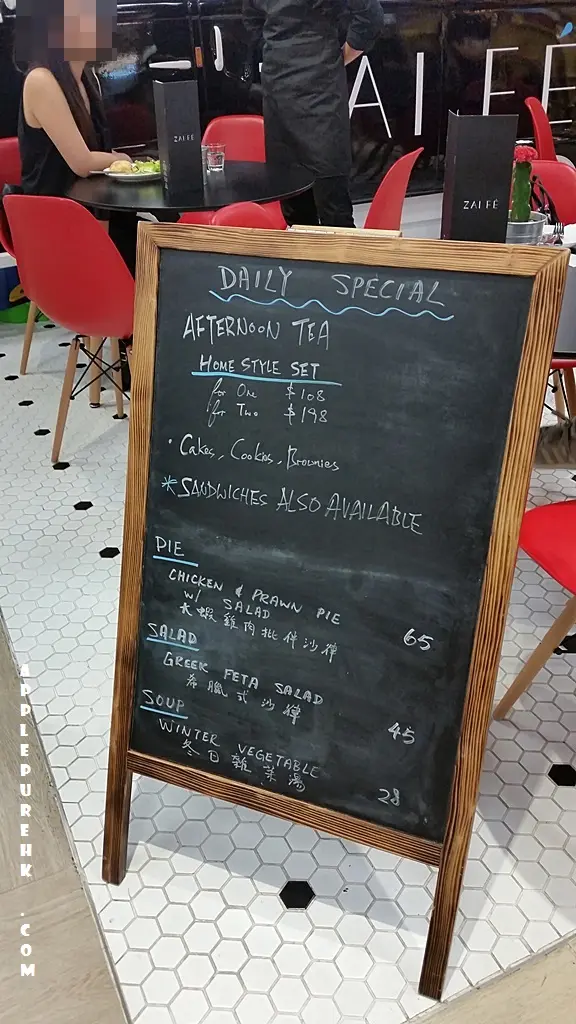 ZAI FÉ
ZAI FÉ
DAILY SPECIAL
AFTERNOON TEA
HOME STYLE SET
for One $108
for Two $198
· Cakes, Cookies, Brownies
* SANDWICHES ALSO AVAILABLE
PIE
CHICKEN & PRAWN PIE
w/ SALAD
大蝦雞肉批伴沙律 65
SALAD
GREEK FETA SALAD
希臘式沙律 45
SOUP
WINTER VEGETABLE
冬日雜菜湯 28
APPLEPUREHK.COM